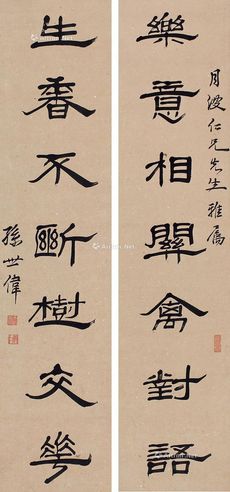 樂意相關禽對語
月波仁兄先生雅屬
生香不斷樹交花
孫世偉